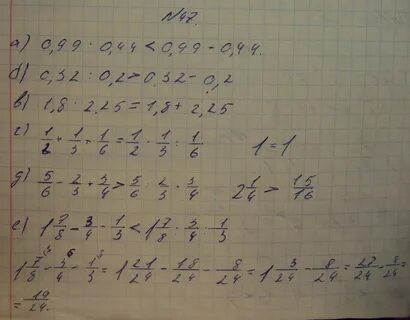 №47.
а) 0,99 · 0,44 < 0,99 - 0,44.
б) 0,32 : 0,2 > 0,32 - 0,2
в) 1,8 · 2,25 = 1,8 + 2,25
г) 1/2 + 1/3 + 1/6 = 1/2 · 1/3 : 1/6 1 = 1
д) 5/6 - 2/3 + 3/4 > 5/6 : 2/3 · 3/4 2 1/4 > 15/16
е) 1 7/8 - 3/4 - 1/3 < 1 7/8 : 3/4 : 1/3
1 7/8 - 3/4 - 1/3 = 1 21/24 - 18/24 - 8/24 = 1 3/24 - 8/24 = 27/24 - 8/24 =
= 19/24.